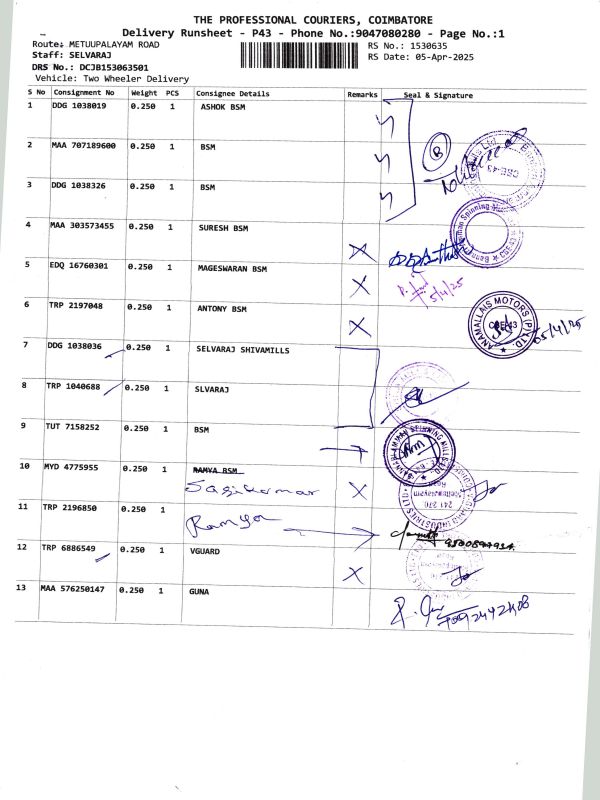 THE PROFESSIONAL COURIERS, COIMBATORE
Delivery Runsheet - P43 - Phone No.:9047080280 - Page No.:1
Route: METUUPALAYAM ROAD
RS No.: 1530635
Staff: SELVARAJ
RS Date: 05-Apr-2025
DRS No.: DCJB153063501
Vehicle: Two Wheeler Delivery
S No Consignment No Weight PCS Consignee Details Remarks Seal & Signature
1 DDG 1038019 0.250 1 ASHOK BSM
2 MAA 707189600 0.250 1 BSM
B
CBE-43
3 DDG 1038326 0.250 1 BSM
4 MAA 303573455 0.250 1 SURESH BSM
5 EDQ 16760301 0.250 1 MAGESWARAN BSM
5/4/25
6 TRP 2197048 0.250 1 ANTONY BSM
ANAMALLAIS MOTORS (P) LTD
CBE-43
05/4/25
7 DDG 1038036 0.250 1 SELVARAJ SHIVAMILLS
8 TRP 1040688 0.250 1 SLVARAJ
9 TUT 7158252 0.250 1 BSM
10 MYD 4775955 0.250 1 RAMYA BSM
Sasikumar
11 TRP 2196850 0.250 1
Ramya
12 TRP 6886549 0.250 1 VGUARD
13 MAA 576250147 0.250 1 GUNA